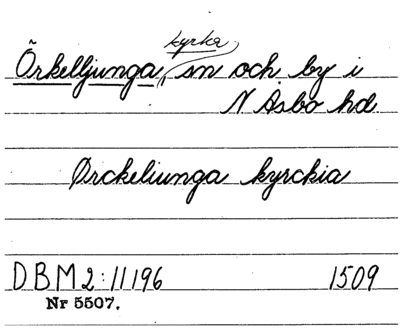 kyrka,
Örkelljunga, sn och by i
N Åsbo hd
Ørckeliunga kyrckia
DBM 2:11196 1509
Nr 5507.